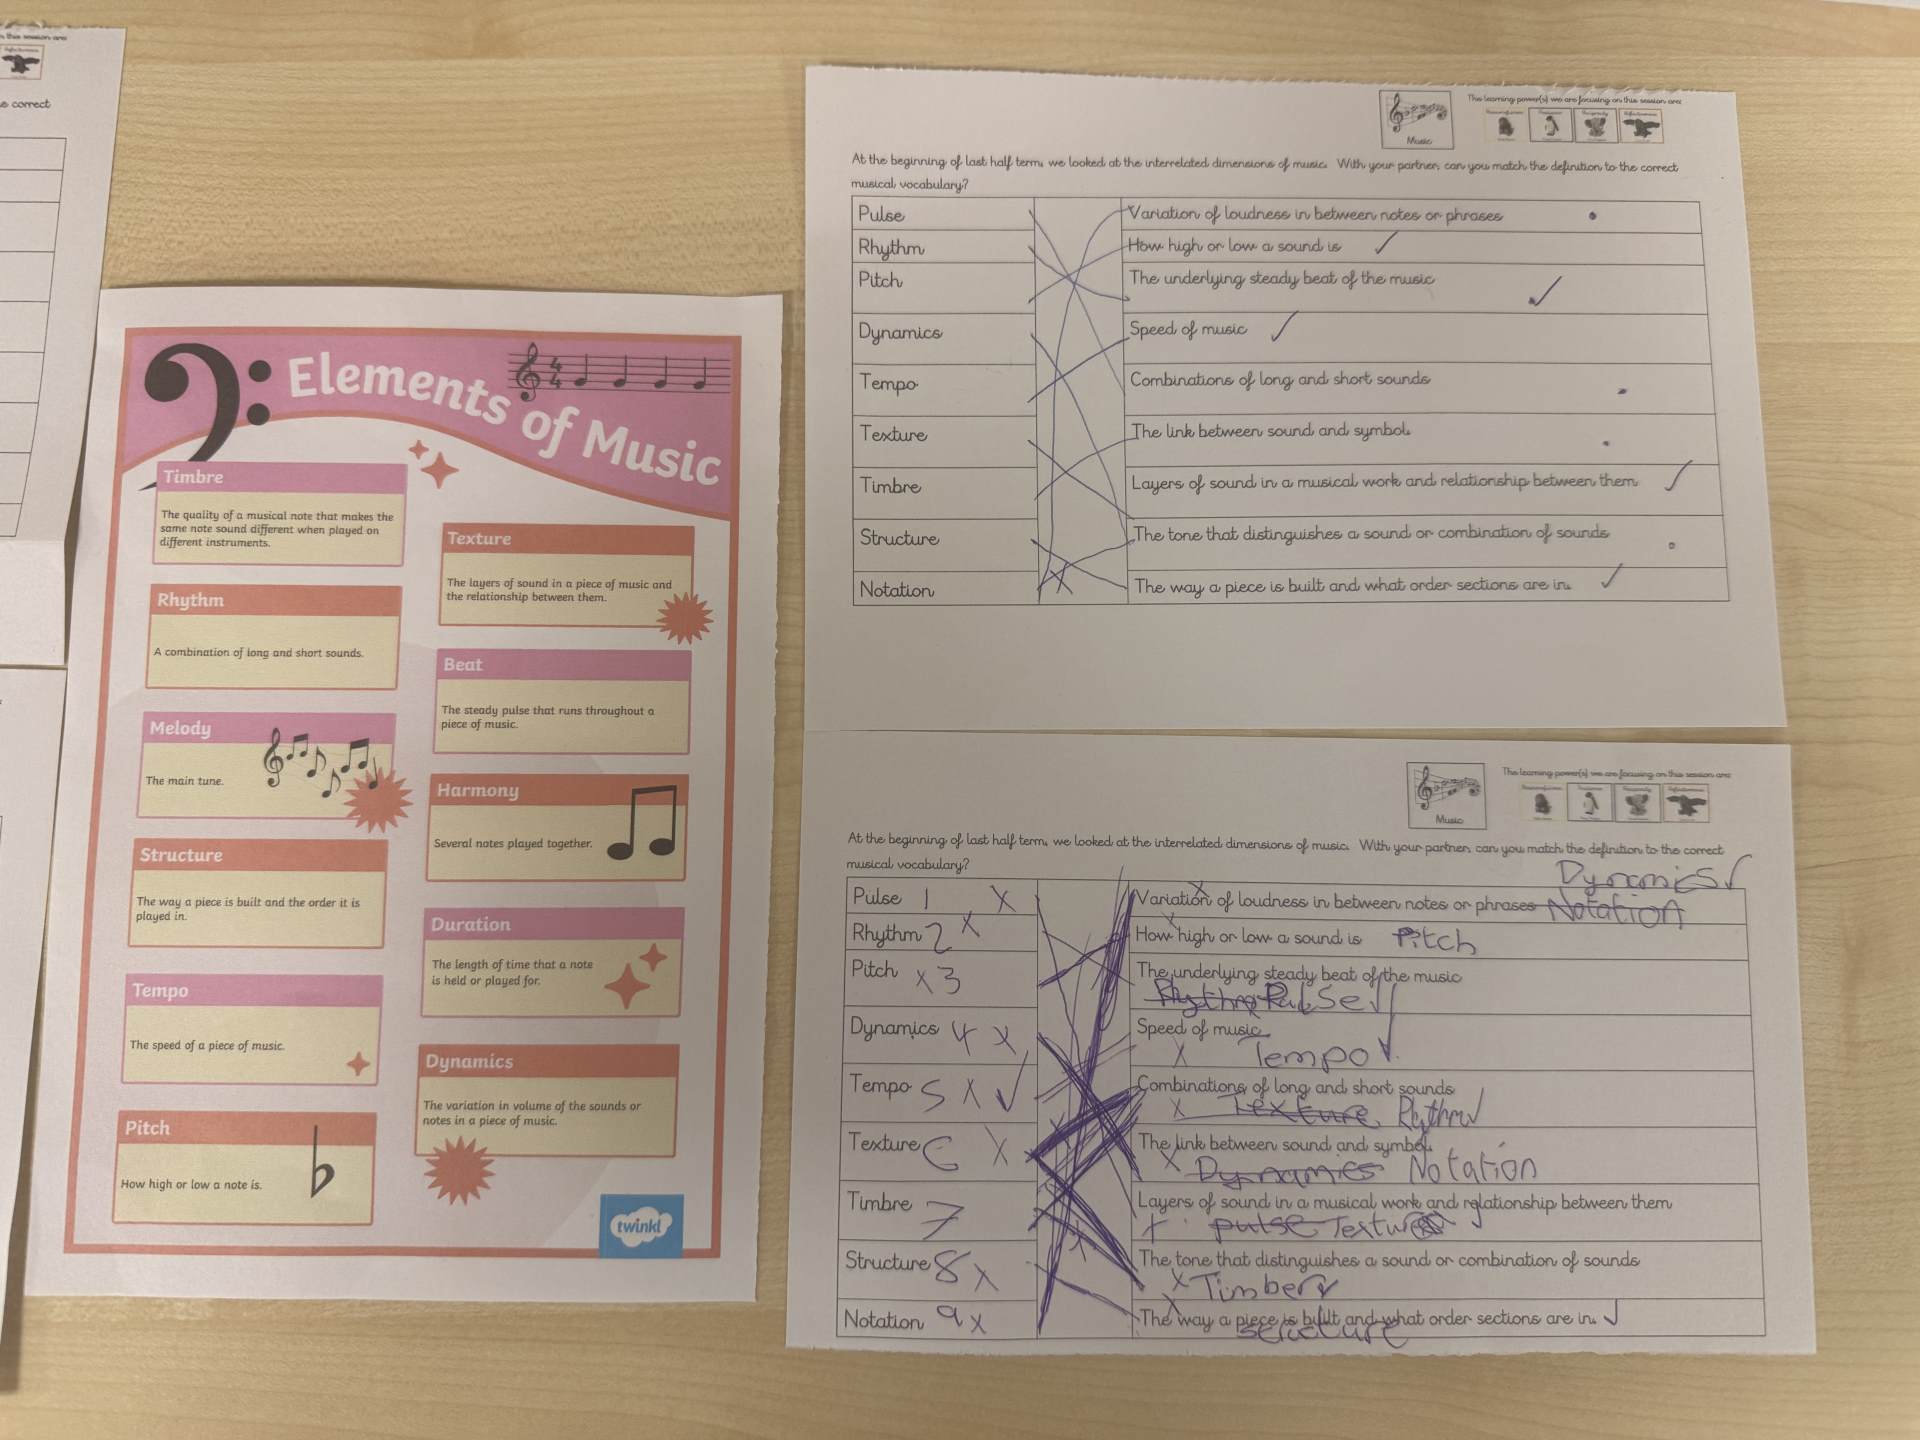 n this session are:
e correct
Elements of Music
4
4
Timbre
The quality of a musical note that makes the
same note sound different when played on
different instruments.
Rhythm
A combination of long and short sounds.
Melody
The main tune.
Structure
The way a piece is built and the order it is
played in.
Tempo
The speed of a piece of music.
Pitch
How high or low a note is.
Texture
The layers of sound in a piece of music and
the relationship between them.
Beat
The steady pulse that runs throughout a
piece of music.
Harmony
Several notes played together.
Duration
The length of time that a note
is held or played for.
Dynamics
The variation in volume of the sounds or
notes in a piece of music.
twinkl
Music
The learning power(s) we are focusing on this session are:
At the beginning of last half term, we looked at the interrelated dimensions of music. With your partner, can you match the definition to the correct
musical vocabulary?
Pulse
Variation of loudness in between notes or phrases
Rhythm
How high or low a sound is
Pitch
The underlying steady beat of the music
Dynamics
Speed of music
Tempo
Combinations of long and short sounds
Texture
The link between sound and symbol.
Timbre
Layers of sound in a musical work and relationship between them
Structure
The tone that distinguishes a sound or combination of sounds
Notation
The way a piece is built and what order sections are in.
Music
The learning power(s) we are focusing on this session are:
At the beginning of last half term, we looked at the interrelated dimensions of music. With your partner, can you match the definition to the correct
musical vocabulary?
Dynamics
Pulse 1 x
Variation of loudness in between notes or phrases Notation
Rhythm 2 x
How high or low a sound is Pitch
Pitch x 3
The underlying steady beat of the music
Rhythm Pulse
Dynamics 4 x
Speed of music
Tempo
Tempo 5 x
Combinations of long and short sounds
Texture Rythm
Texture 6 x
The link between sound and symbol.
Dynamics Notation
Timbre 7
Layers of sound in a musical work and relationship between them
pulse Texture
Structure 8 x
The tone that distinguishes a sound or combination of sounds
Timber
Notation 9 x
The way a piece is built and what order sections are in.
structure